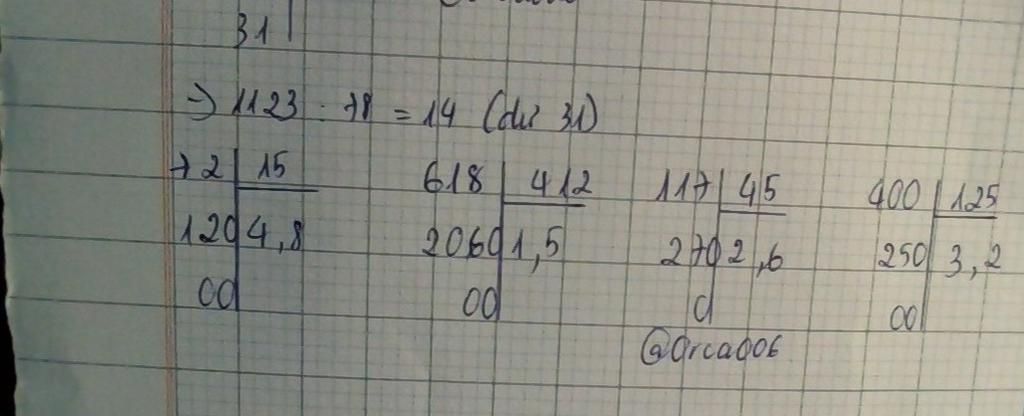 31
→ 1123 : 78 = 14 (dư 31)
72 15 618 412 117 45 400 125
120 4,8 2060 1,5 270 2,6 250 3,2
00 00 0 00
@Orca006